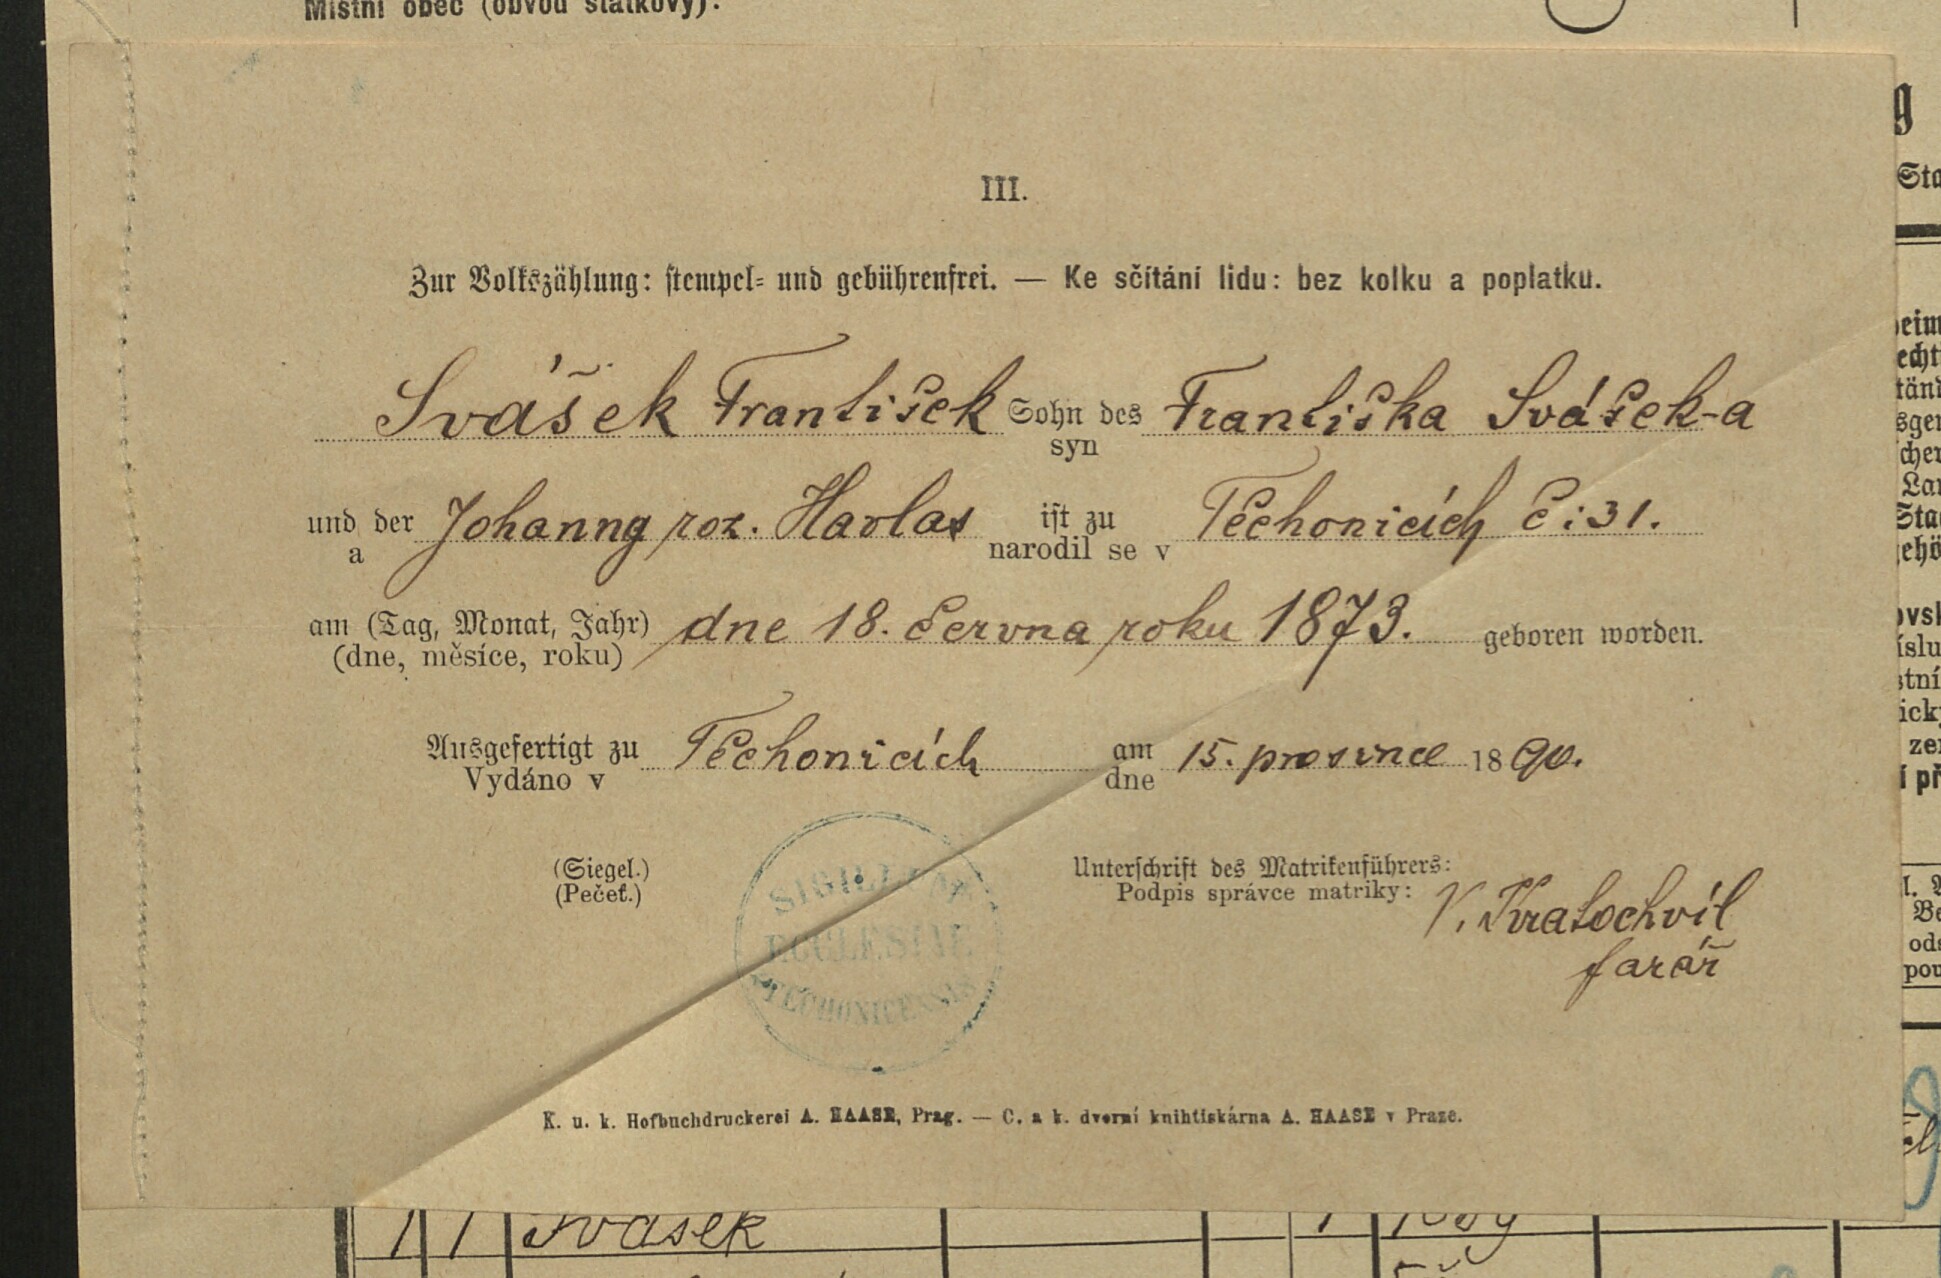 Místní obec (obvod statkový):
III.
Zur Volkszählung: stempel- und gebührenfrei. — Ke sčítání lidu: bez kolku a poplatku.
Svášek František Sohn des Františka Svášek-a
syn
und der Johanny roz. Havlas ist zu Těchonicích č: 31.
a narodil se v
am (Tag, Monat, Jahr) dne 18. června roku 1873. geboren worden.
(dne, měsíce, roku)
Ausgefertigt zu Těchonicích am 15. prosince 1890.
Vydáno v dne
(Siegel.) Unterschrift des Matrikenführers:
(Pečeť.) Podpis správce matriky: V. Kratochvíl
farář
SIGILLUM
ECCLESIAE
TĚCHONICENSIS
K. u. k. Hofbuchdruckerei A. HAASE, Prag. — C. a k. dvorní knihtiskárna A. HAASE v Praze.
1 1 Svášek